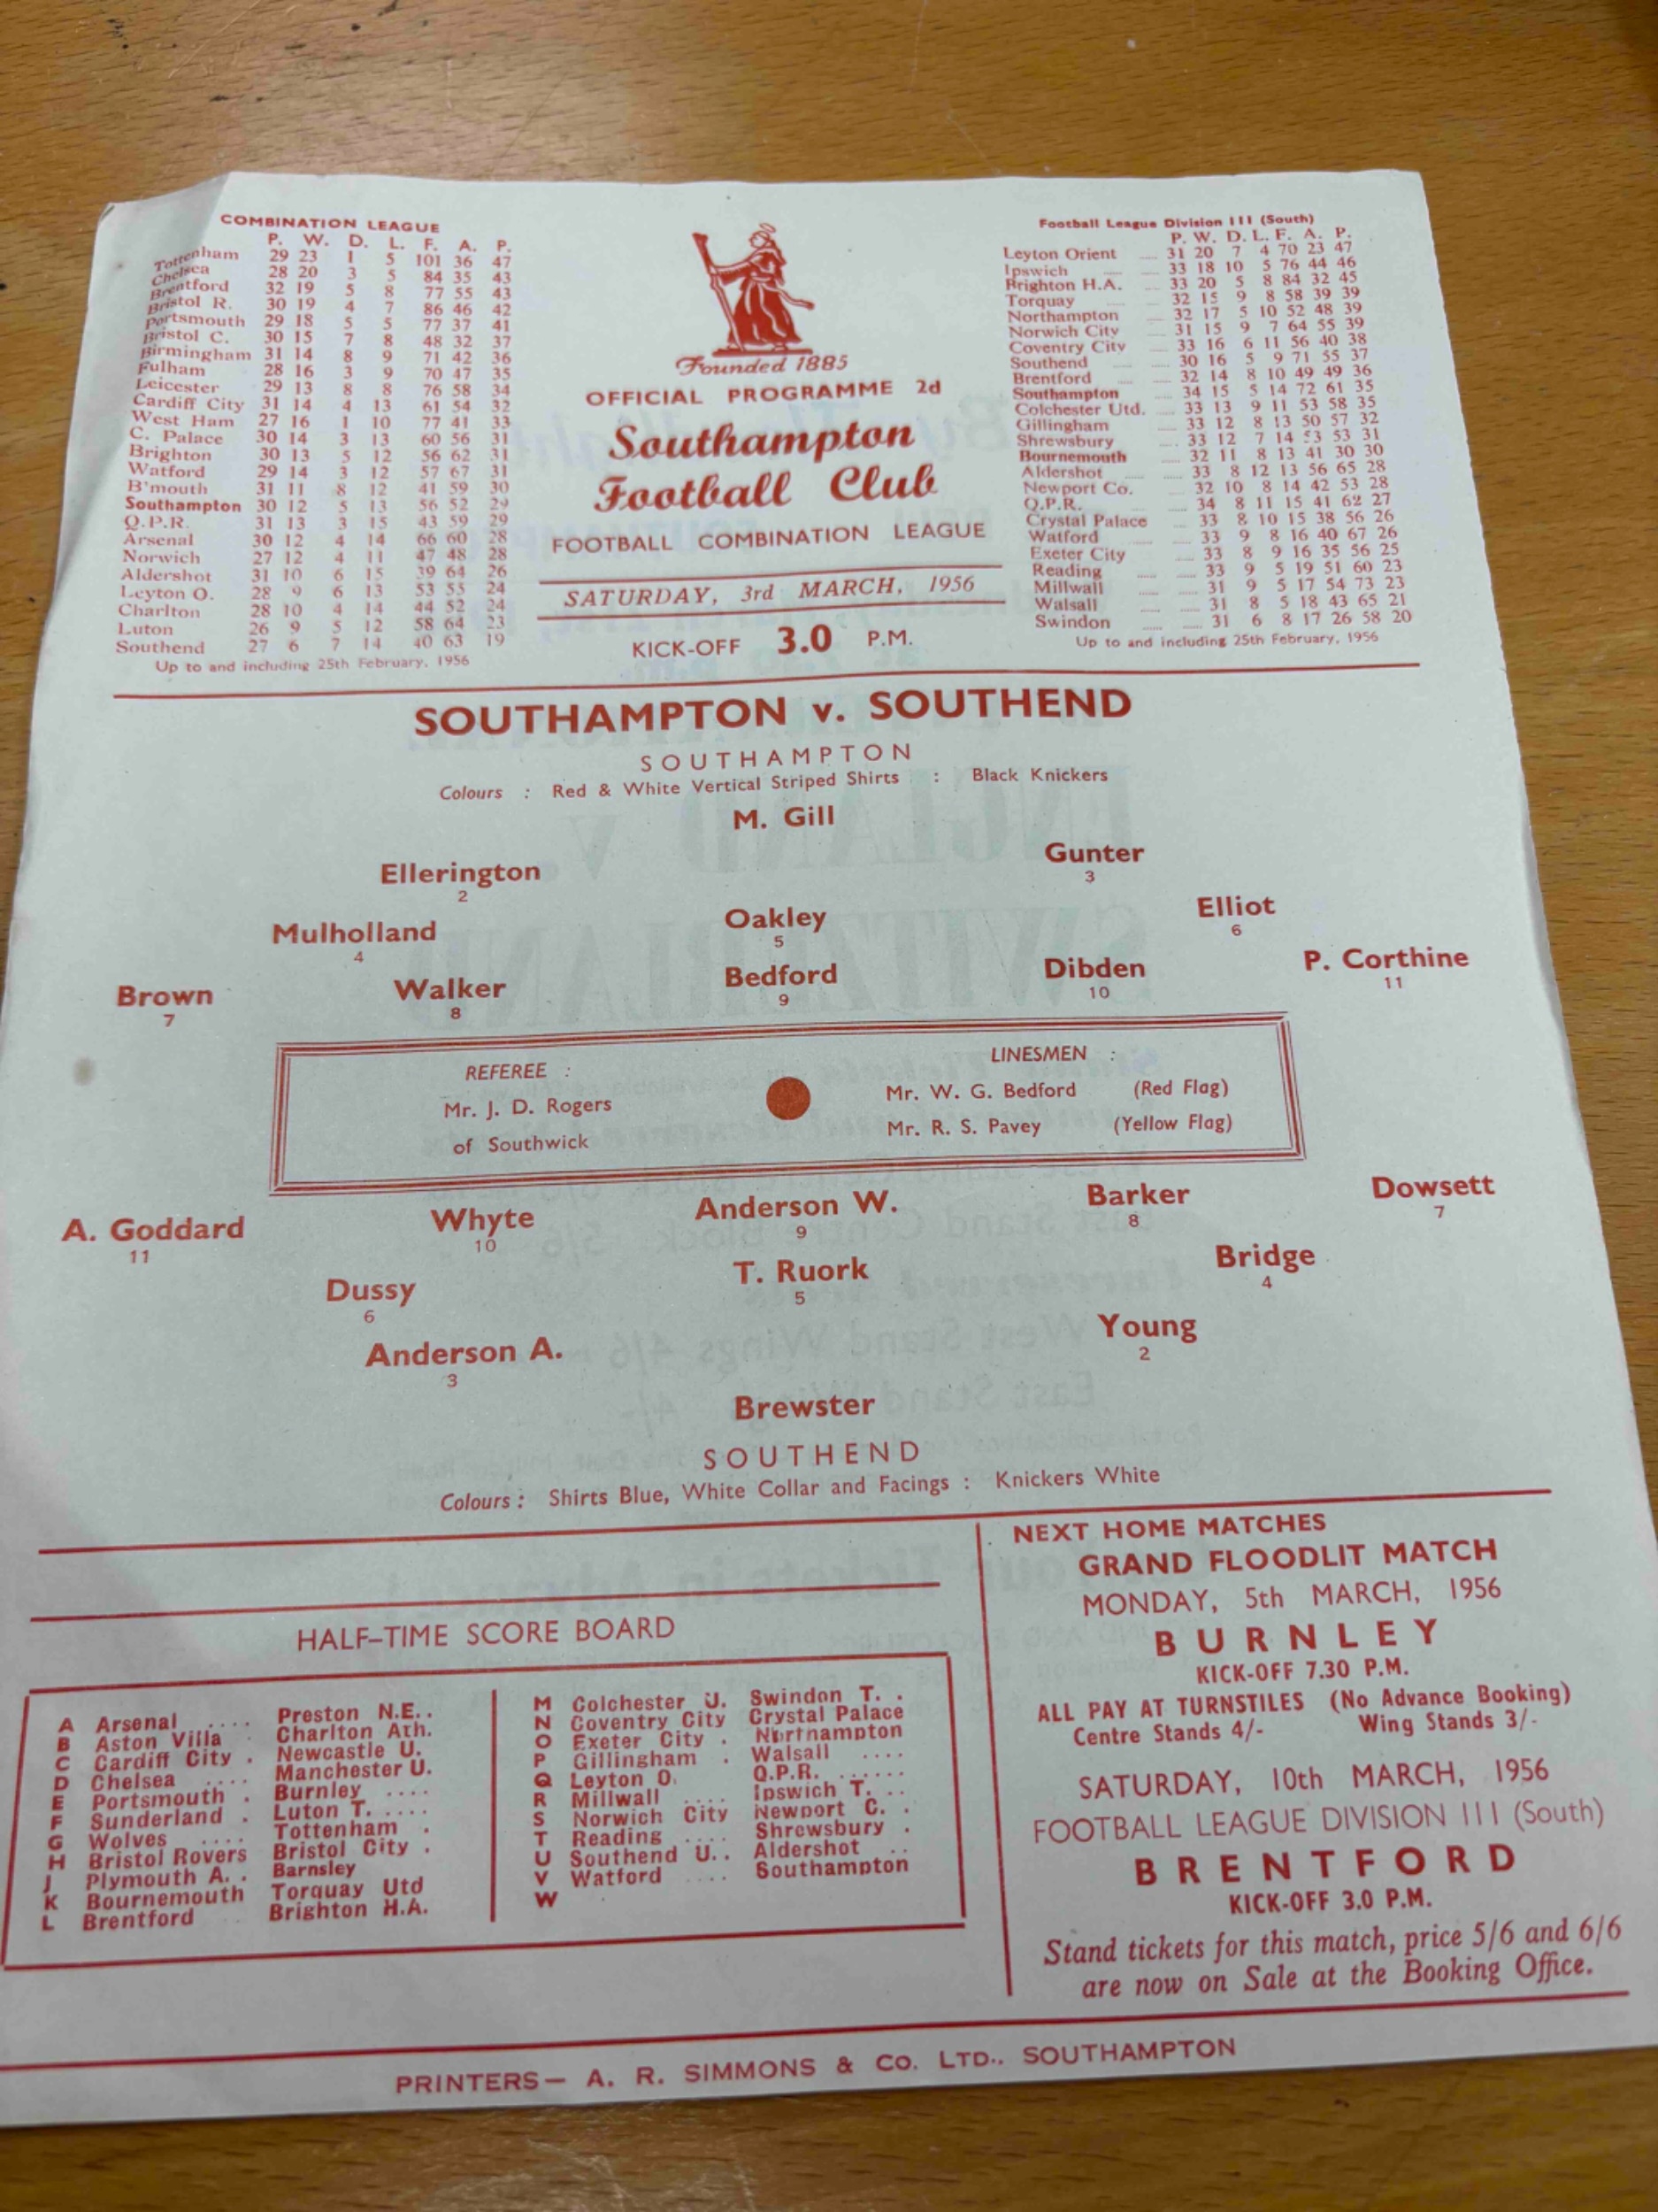 COMBINATION LEAGUE
P. W. D. L. F. A. P.
Tottenham 29 23 1 5 101 36 47
Chelsea 28 20 3 5 84 35 43
Brentford 32 19 5 8 77 55 43
Bristol R. 30 19 4 7 86 46 42
Portsmouth 29 18 5 5 77 37 41
Bristol C. 30 15 7 8 48 32 37
Birmingham 31 14 8 9 71 42 36
Fulham 28 16 3 9 70 47 35
Leicester 29 13 8 8 76 58 34
Cardiff City 31 14 4 13 61 54 32
West Ham 27 16 1 10 77 41 33
C. Palace 30 14 3 13 60 56 31
Brighton 30 13 5 12 56 62 31
Watford 29 14 3 12 57 67 31
B'mouth 31 11 8 12 41 59 30
Southampton 30 12 5 13 56 52 29
Q.P.R. 31 13 3 15 43 59 29
Arsenal 30 12 4 14 66 60 28
Norwich 27 12 4 11 47 48 28
Aldershot 31 10 6 15 39 64 26
Leyton O. 28 9 6 13 53 55 24
Charlton 28 10 4 14 44 52 24
Luton 26 9 5 12 58 64 23
Southend 27 6 7 14 40 63 19
Up to and including 25th February, 1956
Founded 1885
OFFICIAL PROGRAMME 2d
Southampton
Football Club
FOOTBALL COMBINATION LEAGUE
SATURDAY, 3rd MARCH, 1956
KICK-OFF 3.0 P.M.
Football League Division III (South)
P. W. D. L. F. A. P.
Leyton Orient .... 31 20 7 4 70 23 47
Ipswich .... 33 18 10 5 76 44 46
Brighton H.A. .... 33 20 5 8 84 32 45
Torquay .... 32 15 9 8 58 39 39
Northampton .... 32 17 5 10 52 48 39
Norwich City .... 31 15 9 7 64 55 39
Coventry City .... 33 16 6 11 56 40 38
Southend .... 30 16 5 9 71 55 37
Brentford .... 32 14 8 10 49 49 36
Southampton .... 34 15 5 14 72 61 35
Colchester Utd. .... 33 13 9 11 53 58 35
Gillingham .... 33 12 8 13 50 57 32
Shrewsbury .... 33 12 7 14 53 53 31
Bournemouth .... 32 11 8 13 41 30 30
Aldershot .... 33 8 12 13 56 65 28
Newport Co. .... 32 10 8 14 42 53 28
Q.P.R. .... 34 8 11 15 41 62 27
Crystal Palace .... 33 8 10 15 38 56 26
Watford .... 33 9 8 16 40 67 26
Exeter City .... 33 8 9 16 35 56 25
Reading .... .... 33 9 5 19 51 60 23
Millwall .... .... 31 9 5 17 54 73 23
Walsall .... .... 31 8 5 18 43 65 21
Swindon .... .... 31 6 8 17 26 58 20
Up to and including 25th February, 1956
SOUTHAMPTON v. SOUTHEND
SOUTHAMPTON
Colours : Red & White Vertical Striped Shirts : Black Knickers
M. Gill
Ellerington Gunter
2 3
Mulholland Oakley Elliot
4 5 6
Brown Walker Bedford Dibden P. Corthine
7 8 9 10 11
REFEREE :
Mr. J. D. Rogers
of Southwick
LINESMEN :
Mr. W. G. Bedford (Red Flag)
Mr. R. S. Pavey (Yellow Flag)
A. Goddard Whyte Anderson W. Barker Dowsett
11 10 9 8 7
Dussy T. Ruork Bridge
6 5 4
Anderson A. Young
3 2
Brewster
SOUTHEND
Colours : Shirts Blue, White Collar and Facings : Knickers White
HALF-TIME SCORE BOARD
A Arsenal .... Preston N.E..
B Aston Villa Charlton Ath.
C Cardiff City . Newcastle U.
D Chelsea .... Manchester U.
E Portsmouth . Burnley ....
F Sunderland . Luton T. ....
G Wolves .... Tottenham .
H Bristol Rovers Bristol City .
J Plymouth A. . Barnsley
K Bournemouth Torquay Utd
L Brentford Brighton H.A.
M Colchester U. Swindon T. .
N Coventry City Crystal Palace
O Exeter City . Northampton
P Gillingham . Walsall ....
Q Leyton O. Q.P.R. ......
R Millwall .... Ipswich T. ..
S Norwich City Newport C. .
T Reading .... Shrewsbury .
U Southend U. . Aldershot ..
V Watford .... Southampton
W
NEXT HOME MATCHES
GRAND FLOODLIT MATCH
MONDAY, 5th MARCH, 1956
BURNLEY
KICK-OFF 7.30 P.M.
ALL PAY AT TURNSTILES (No Advance Booking)
Centre Stands 4/- Wing Stands 3/-
SATURDAY, 10th MARCH, 1956
FOOTBALL LEAGUE DIVISION III (South)
BRENTFORD
KICK-OFF 3.0 P.M.
Stand tickets for this match, price 5/6 and 6/6
are now on Sale at the Booking Office.
PRINTERS— A. R. SIMMONS & Co. LTD.. SOUTHAMPTON